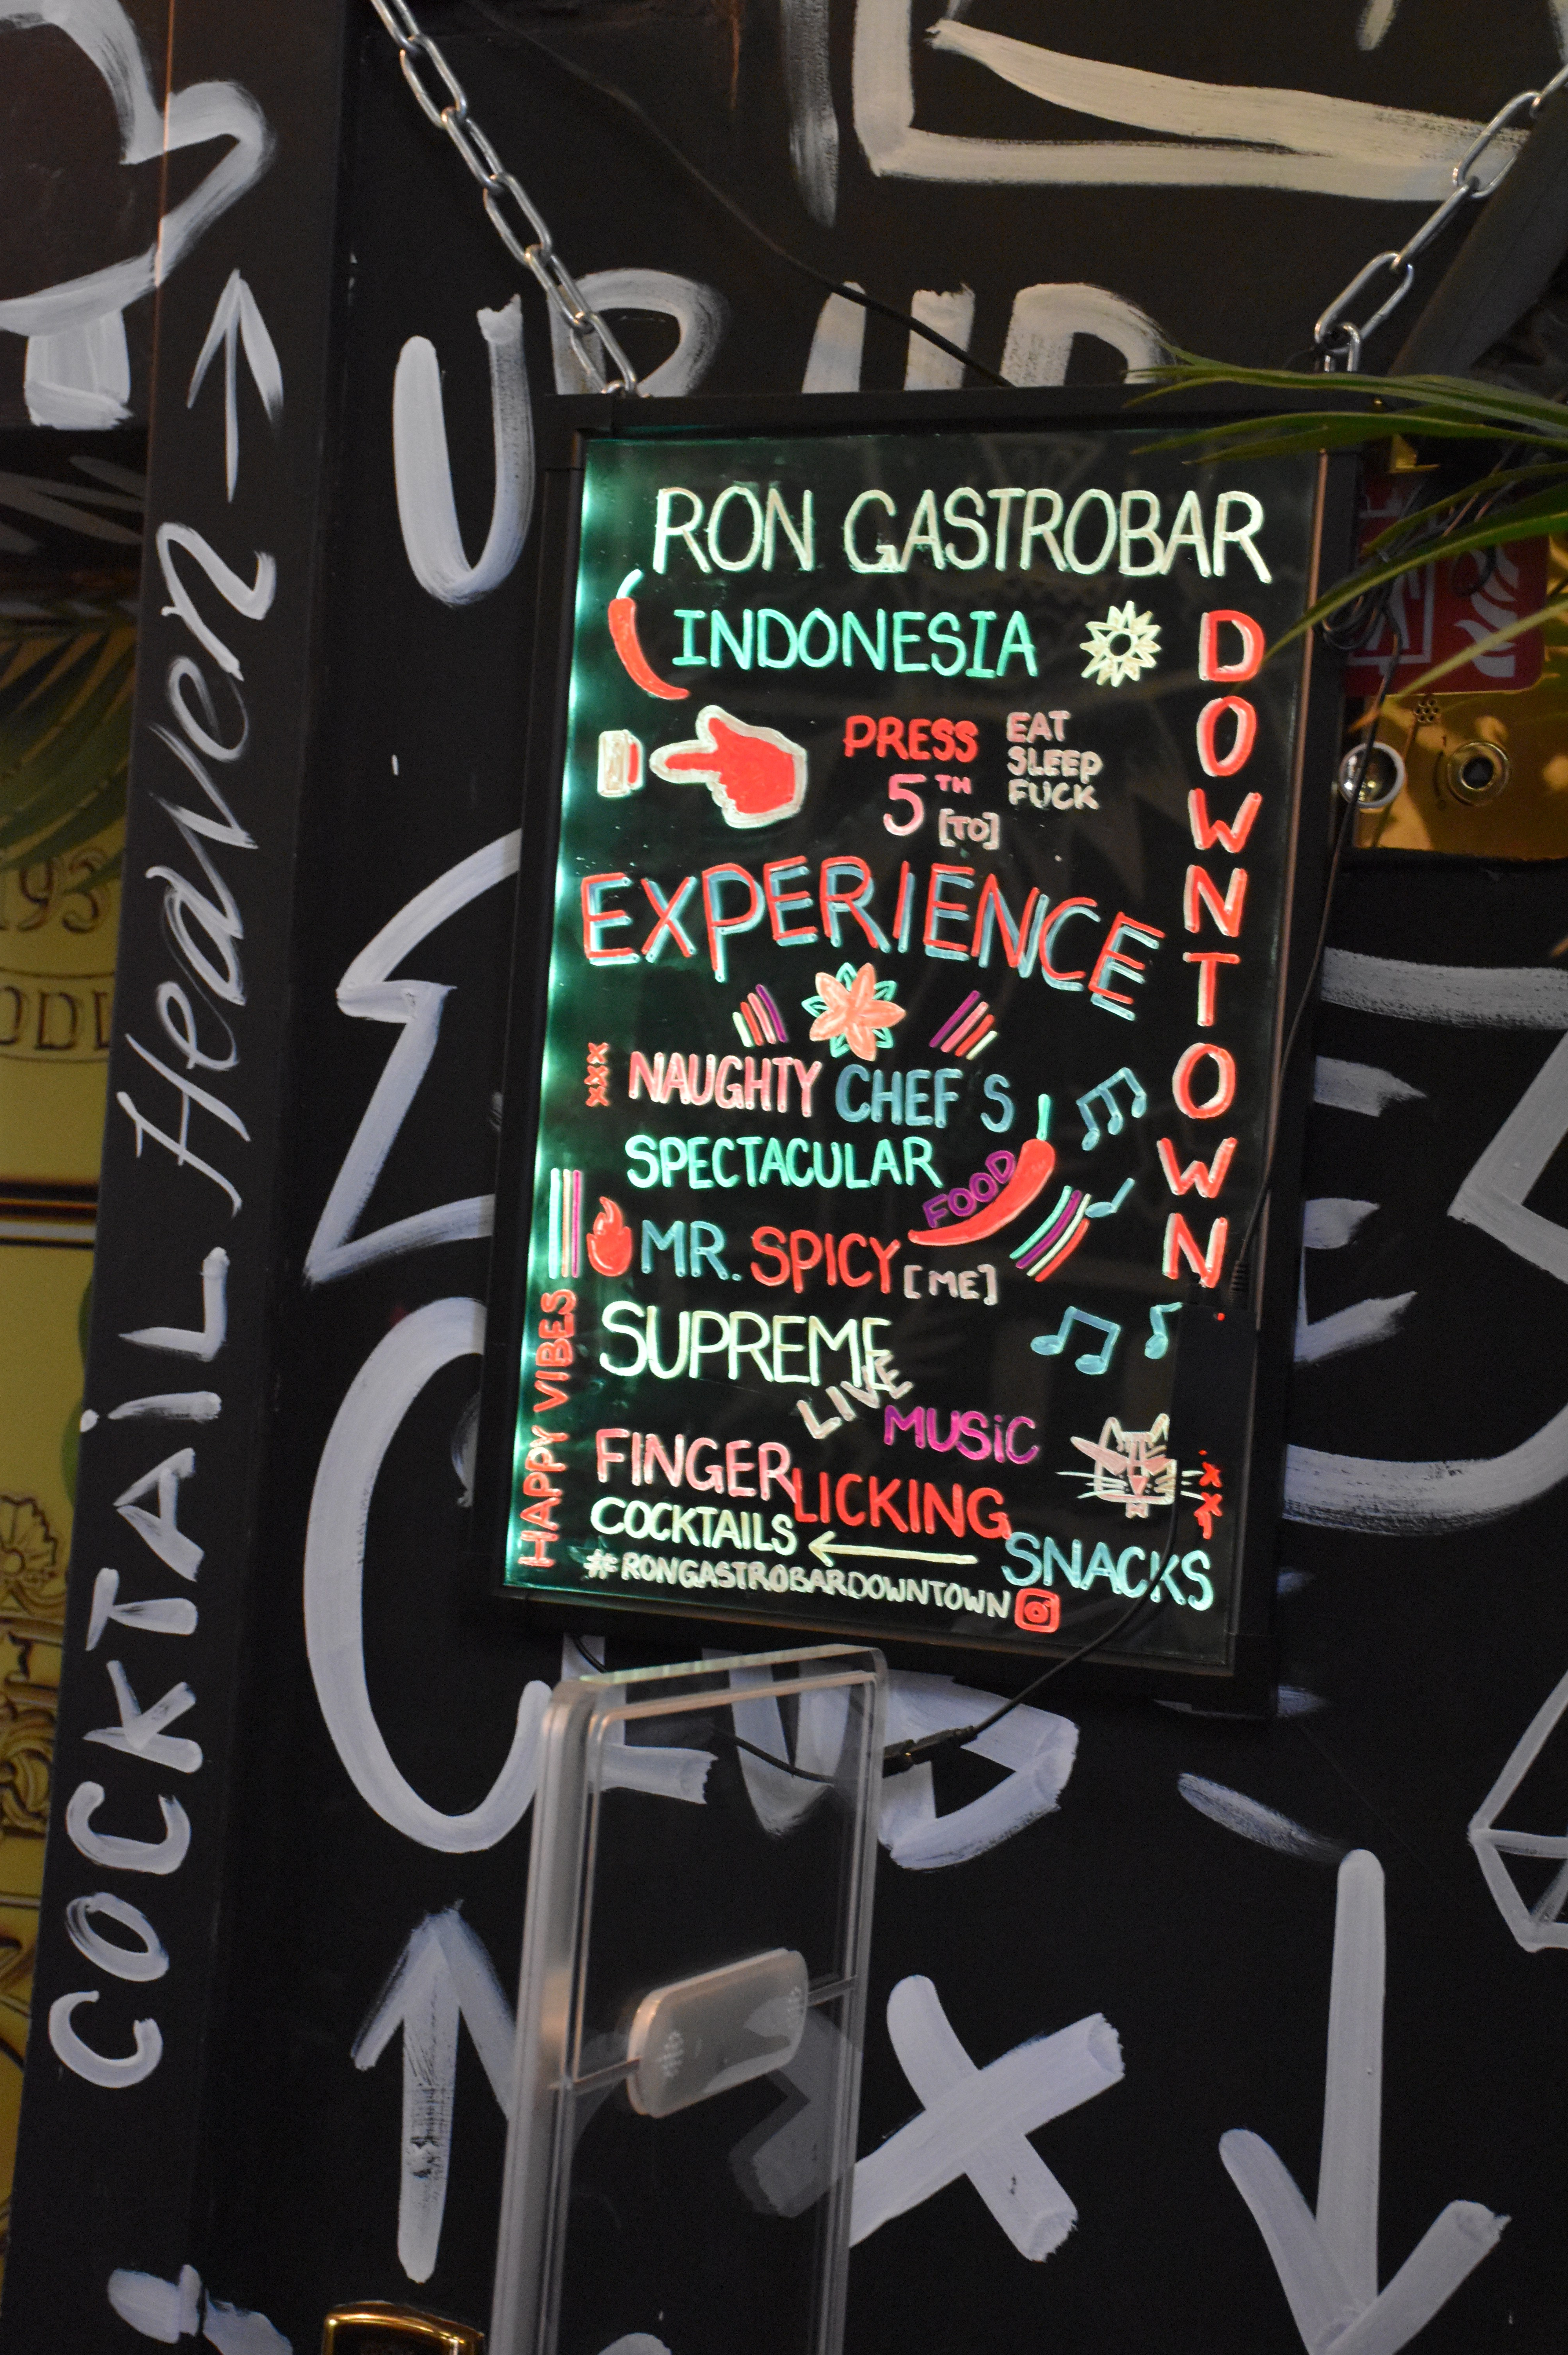 RON GASTROBAR
INDONESIA
DOWNTOWN
PRESS
5TH
[TO]
EAT
SLEEP
FUCK
EXPERIENCE
XXX
NAUGHTY CHEF S
SPECTACULAR
FOOD
MR. SPICY [ME]
SUPREME
LIVE
MUSiC
HAPPY VIBES
FINGERLICKING
COCKTAILS ← SNACKS
#RONGASTROBARDOWNTOWN
COCKTAiL Heaven →